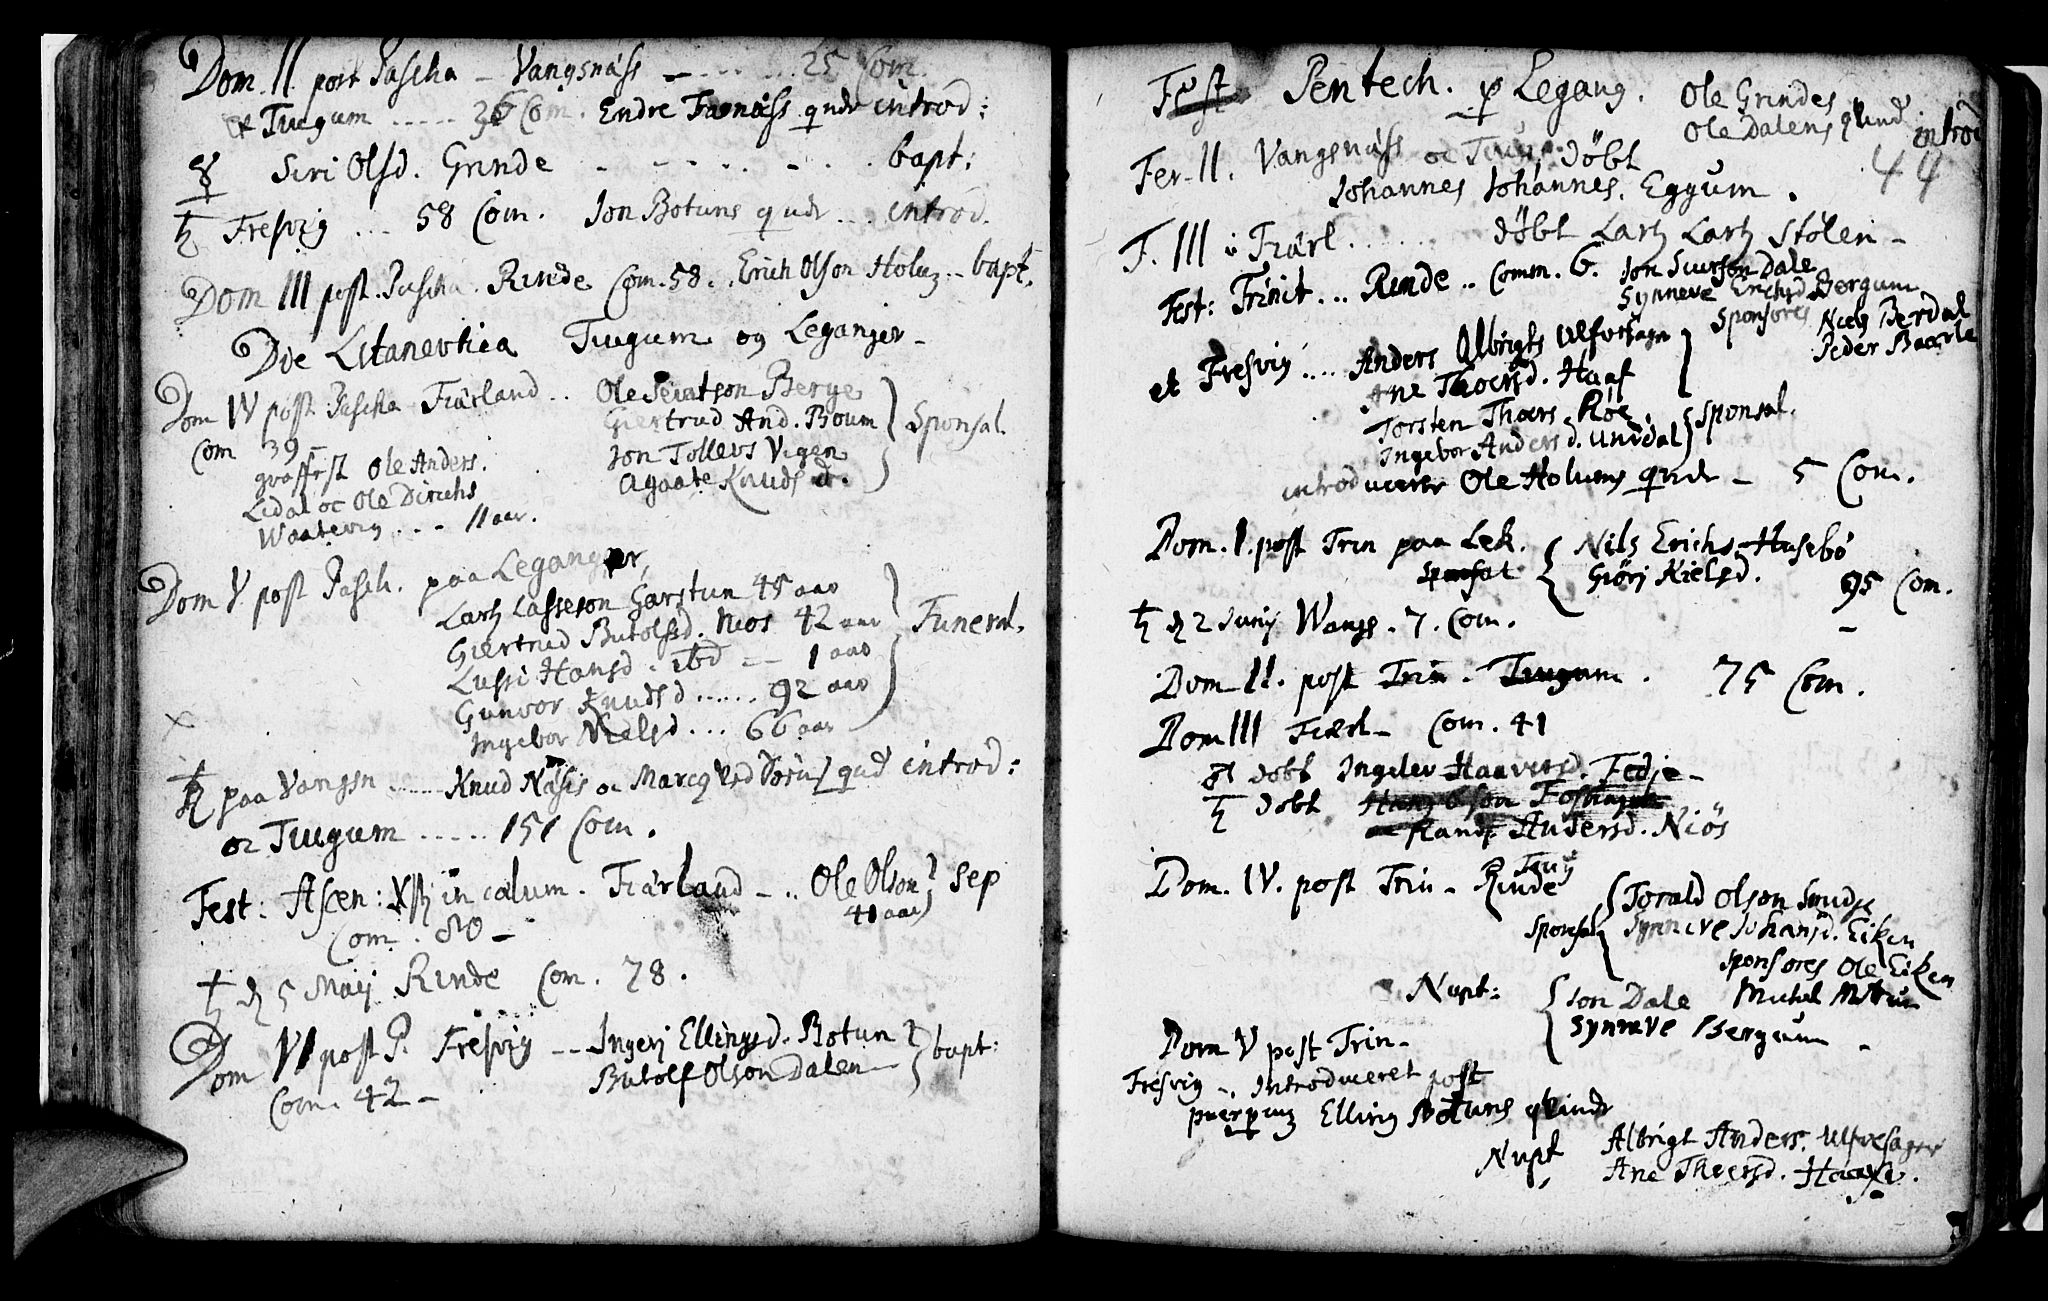 Dom. II post Pascha - Vangsnäss - - - - - 25 Com.
& Tiugum ..... 36 Com. Endre Farnäss qndr introd:
☿ Siri Olsd. Grinde - - - - - . bapt:
♄ Fresvig ... 58 Com. Jon Botuns qndr ... introd.
Dom III post. Pascha. Rinde Com. 58. . Erich Olson Holuz .. bapt.
Die Litanevtica Tiugum og Leganger -
Dom IV post Pascha Fiärland .. Ole Seiatson Berge
Giertrud And. Boum } Sponsal.
Com 39 -
Jon Tollevs Vigen
graffest Ole Anders.
Agaate Knuds d.
Lidal oc Ole Dirichs
Waatevig ... 11 aar.
Dom V post Pasch. paa Leganger,
Lars Lasseson Garstun 45 aar
Giertrud Butolfsd. Nios 42 aar } Funeral.
Lussi Hansd. ibd -- 1 aar
Gunvor Knudsd ...... 92 aar
Ingebor Nielsd ... 66 aar
♄ paa Vangsn ..... Knud Näsis oc Marcq qnd introd:
oc Tiugum ..... 151 Com.
Fest: Ascen: Xsti in cælum. Fiärland - .. Ole Olson } Sep
41 aar
Com. 80 -
♄ d 5 Maij Rinde Com. 78.
Dom VI post P. Fresvig -- Ingerj Ellingsd. Botun } bapt:
Butolf Olson Dalen
Com. 42 -
Fest Pentech. p Legang. Ole Grindes
Ole Dalens qvind introd
44
Fer. II. Vangsnäss oc Tiug. döbt
Johannes Johannes. Eggum.
F. III i Fiärl ...... döbt Lars Lars Stölen -
Fest: Trinit ... Rinde .. Comm. 6. Jon Siurson Dale
Synneve Erichsd Bergum
Sponsores Niels Berdal
Peder Baarle
et Fresvig .... Anders Olbrigts Ulfvesagr
Ane Thoersd. Haaf
Torsten Thoers. Röe
Ingebor Andersd. Unndal } Sponsal.
introducerer Ole Holums qndr - 5 Com.
Dom. I. post Trin paa Lek. { Nils Erichs Husebö
Sponsat Giörj Nielsd.
95 Com.
♄ d 2 Junij Wangs. 7. Com.
Dom II. post Trin. Tiugum. 75 Com.
Dom III Fiærl - Com. 41
♂ döbt Ingelev Haaversd. Fedje -
♄ döbt Hans Olson Foshagen
Randi Andersd. Niös
Dom. IV. post Trin - Rinde
Sponsal { Torald Olson
Synneve Johansd. Eiken
Sponsores Ole Eiken
Michel
Nupt: { Jon Dale
Synneve Bergum -
Dom V post Trin -
Fresvig -. Introduceret post
puerperium Elling Botuns qvindr
Nupt Albrigt Anders. Ulfvesager
Ane Thoersd. Haafve.